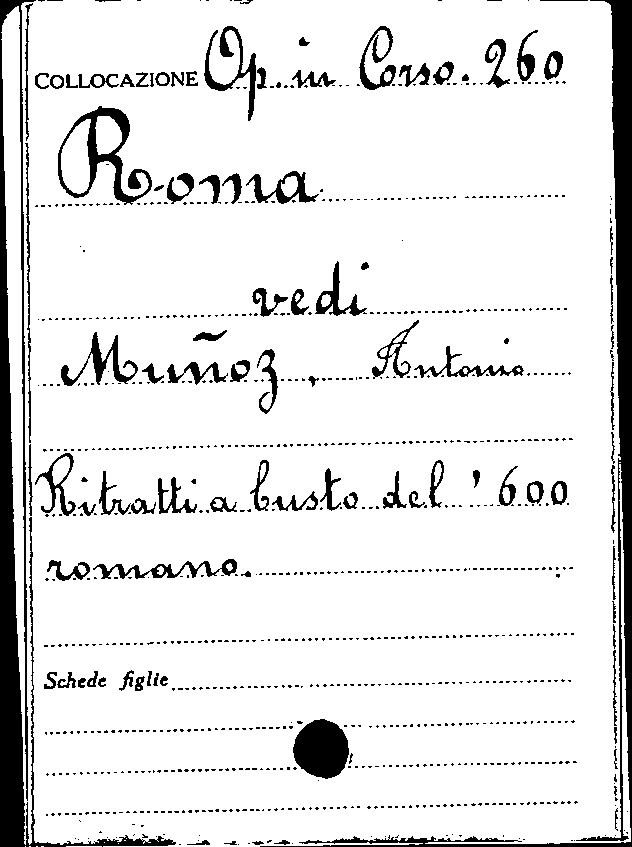 COLLOCAZIONE Op. in Corso. 260
Roma
vedi
Muñoz, Antonio
Ritratti a busto del '600
romano.
Schede figlie